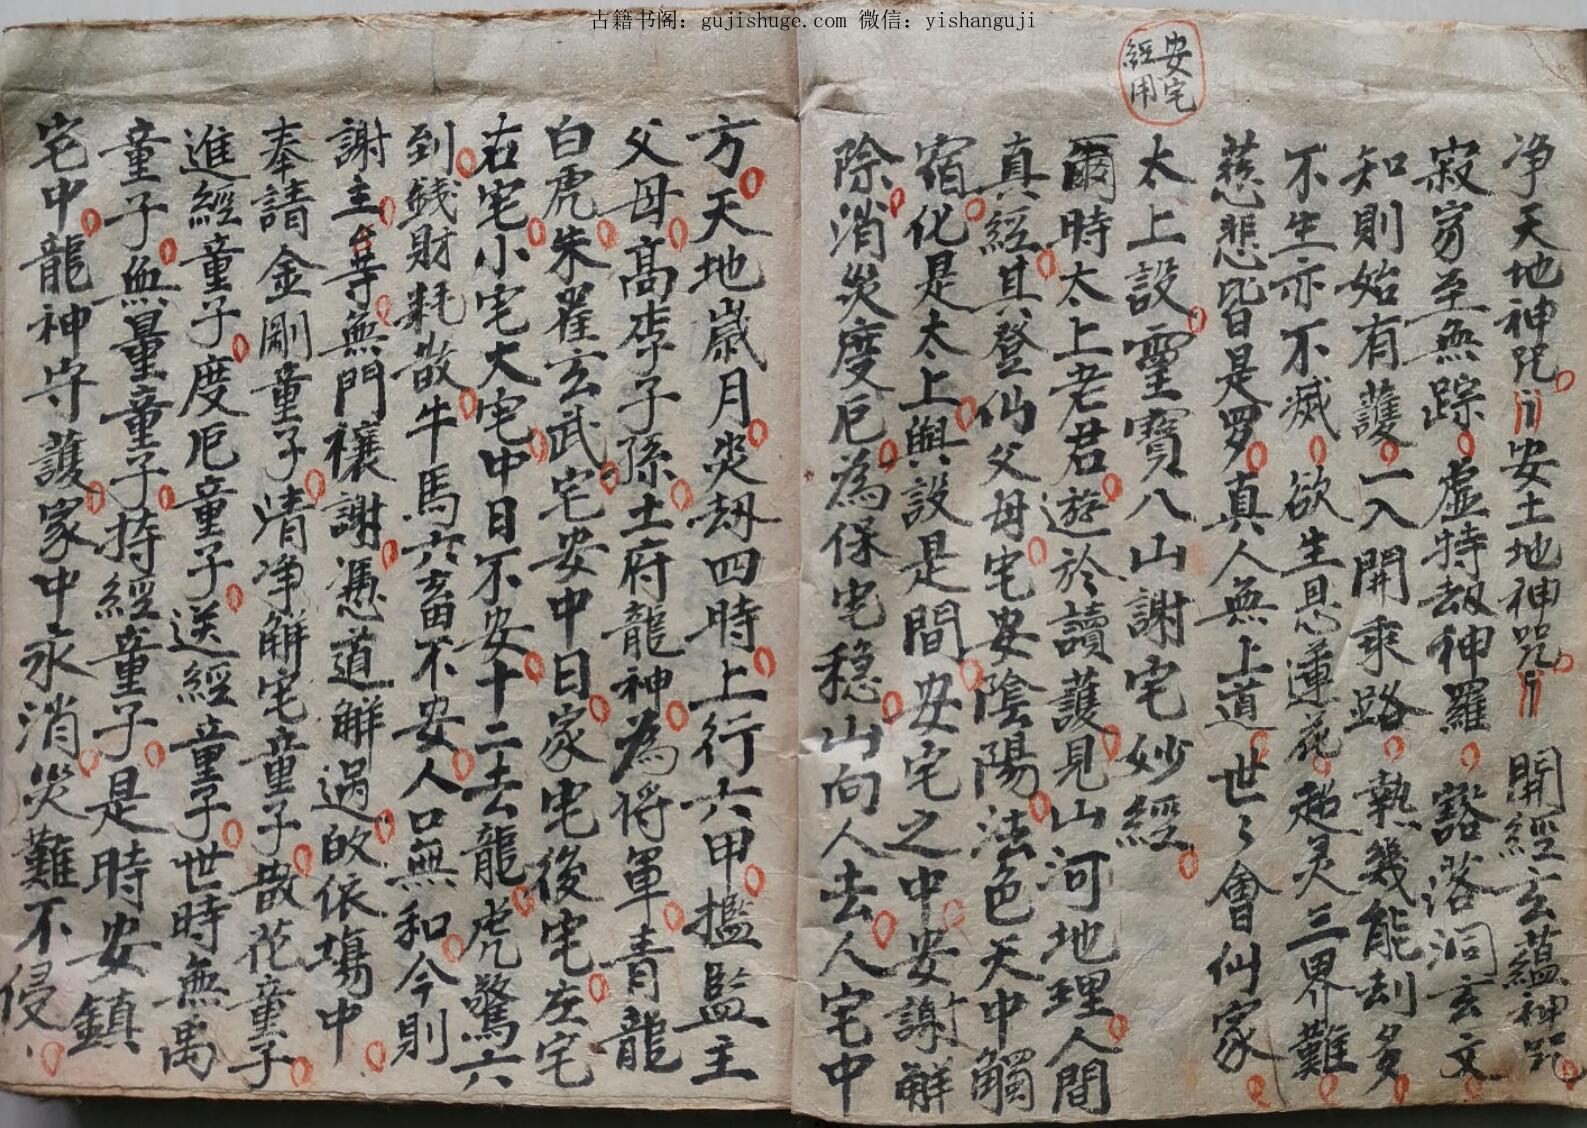 古籍书阁：gujishuge.com 微信：yishanguji
安宅
經用
净天地神咒 安土地神咒 開經玄蘊神咒
寂寂至無踪虚特刼神羅豁落洞玄文
知則始有護一入開乘路熟幾能刦多
不生亦不滅欲生思蓮花超灵三界難
慈悲皆是罗真人無上道世々會仙家
太上設靈寳八山謝宅妙經
爾時太上老君遊於讀護見山河地理人間
真經其登仙父母宅安陰陽法色天中觸
宿化是太上與設是間安宅之中安謝解
除消災度厄為保宅穏山向人去人宅中
方天地歲月災刼四時上行六甲尷監主
父母高李子孫土府龍神為将軍青龍
白虎朱雀玄武宅安中日家宅後宅左宅
右宅小宅大宅中日不安十二去龍虎驚六
到錢財耗散牛馬六畜不安人口無和今則
謝主等無門禳謝憑道解過的依場中
奉請金剛童子清净解宅童子散花童子
進經童子度厄童子送經童子世時無禹
童子無量童子持經童子是時安鎮
宅中龍神守護家中永消災難不侵